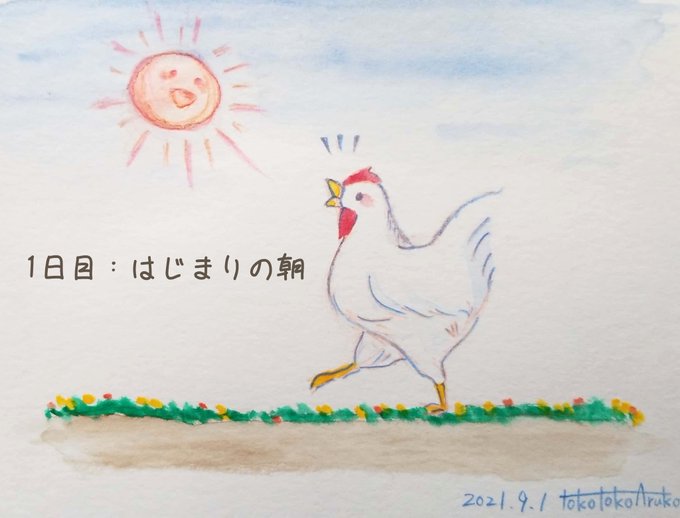 1日目：はじまりの朝
2021.9.1 TokoTokoAruko